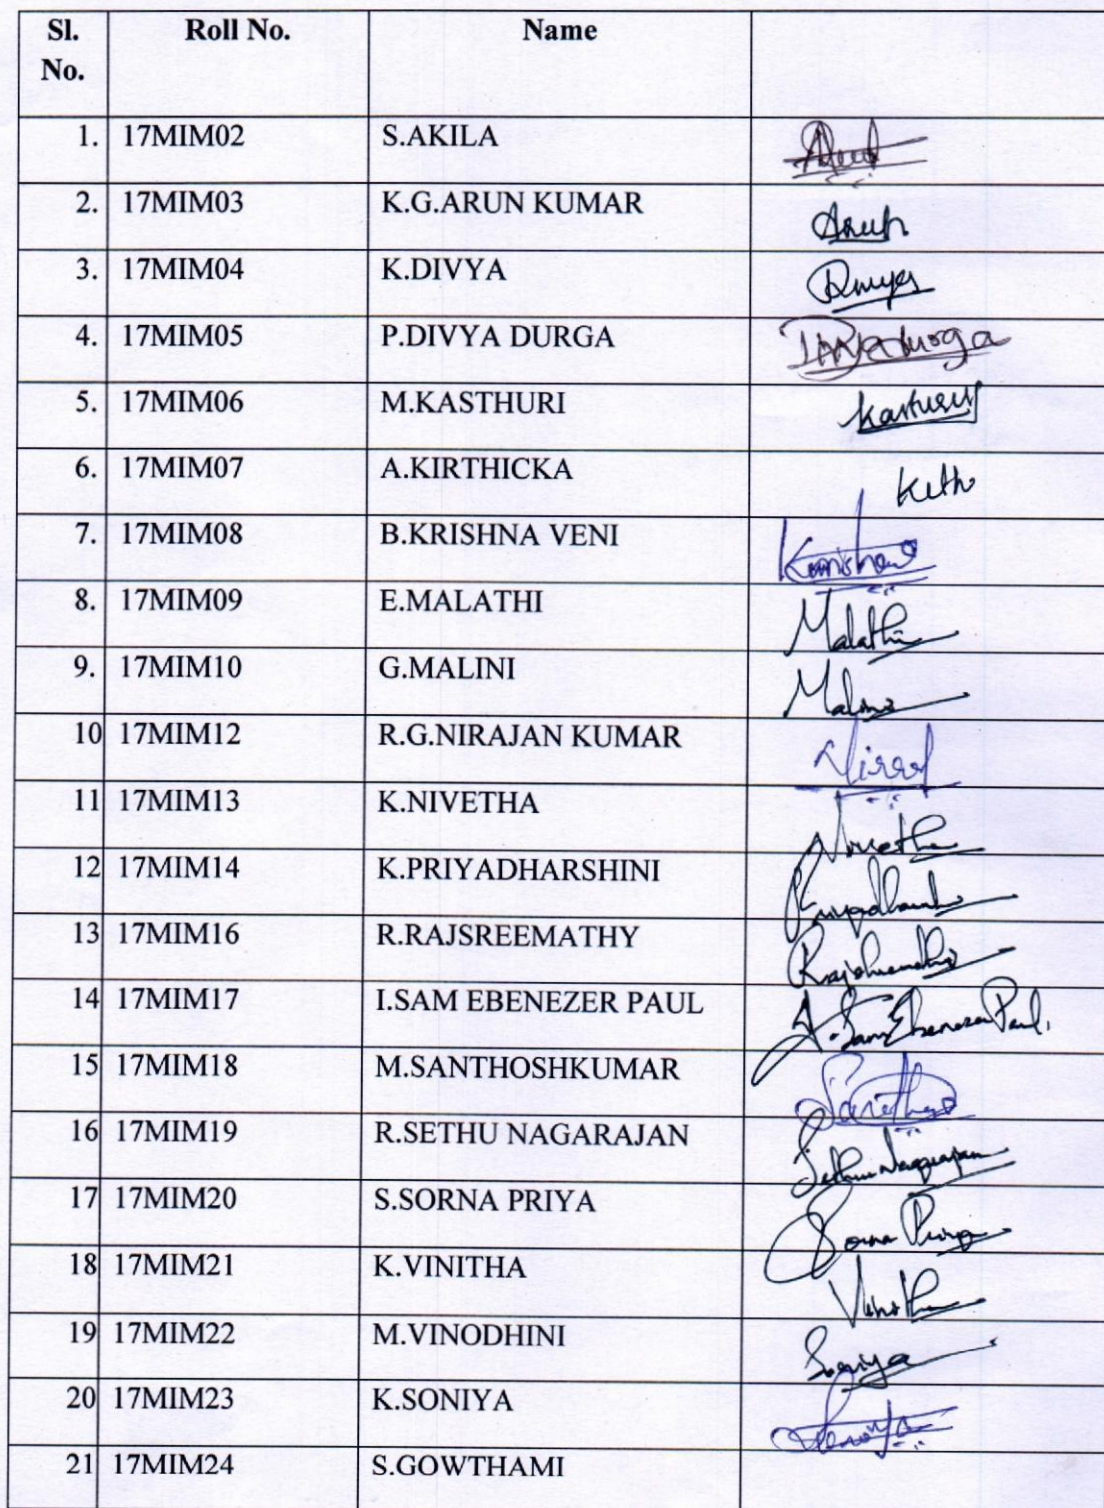 Sl. No. Roll No. Name
1. 17MIM02 S.AKILA
2. 17MIM03 K.G.ARUN KUMAR Arun
3. 17MIM04 K.DIVYA Divya
4. 17MIM05 P.DIVYA DURGA Divyadurga
5. 17MIM06 M.KASTHURI
6. 17MIM07 A.KIRTHICKA
7. 17MIM08 B.KRISHNA VENI
8. 17MIM09 E.MALATHI Malathi
9. 17MIM10 G.MALINI Malini
10 17MIM12 R.G.NIRAJAN KUMAR
11 17MIM13 K.NIVETHA Nivetha
12 17MIM14 K.PRIYADHARSHINI
13 17MIM16 R.RAJSREEMATHY
14 17MIM17 I.SAM EBENEZER PAUL I. Sam Ebenezer Paul.
15 17MIM18 M.SANTHOSHKUMAR
16 17MIM19 R.SETHU NAGARAJAN Sethu Nagarajan
17 17MIM20 S.SORNA PRIYA Sorna Priya
18 17MIM21 K.VINITHA Vinitha
19 17MIM22 M.VINODHINI Soniya
20 17MIM23 K.SONIYA
21 17MIM24 S.GOWTHAMI